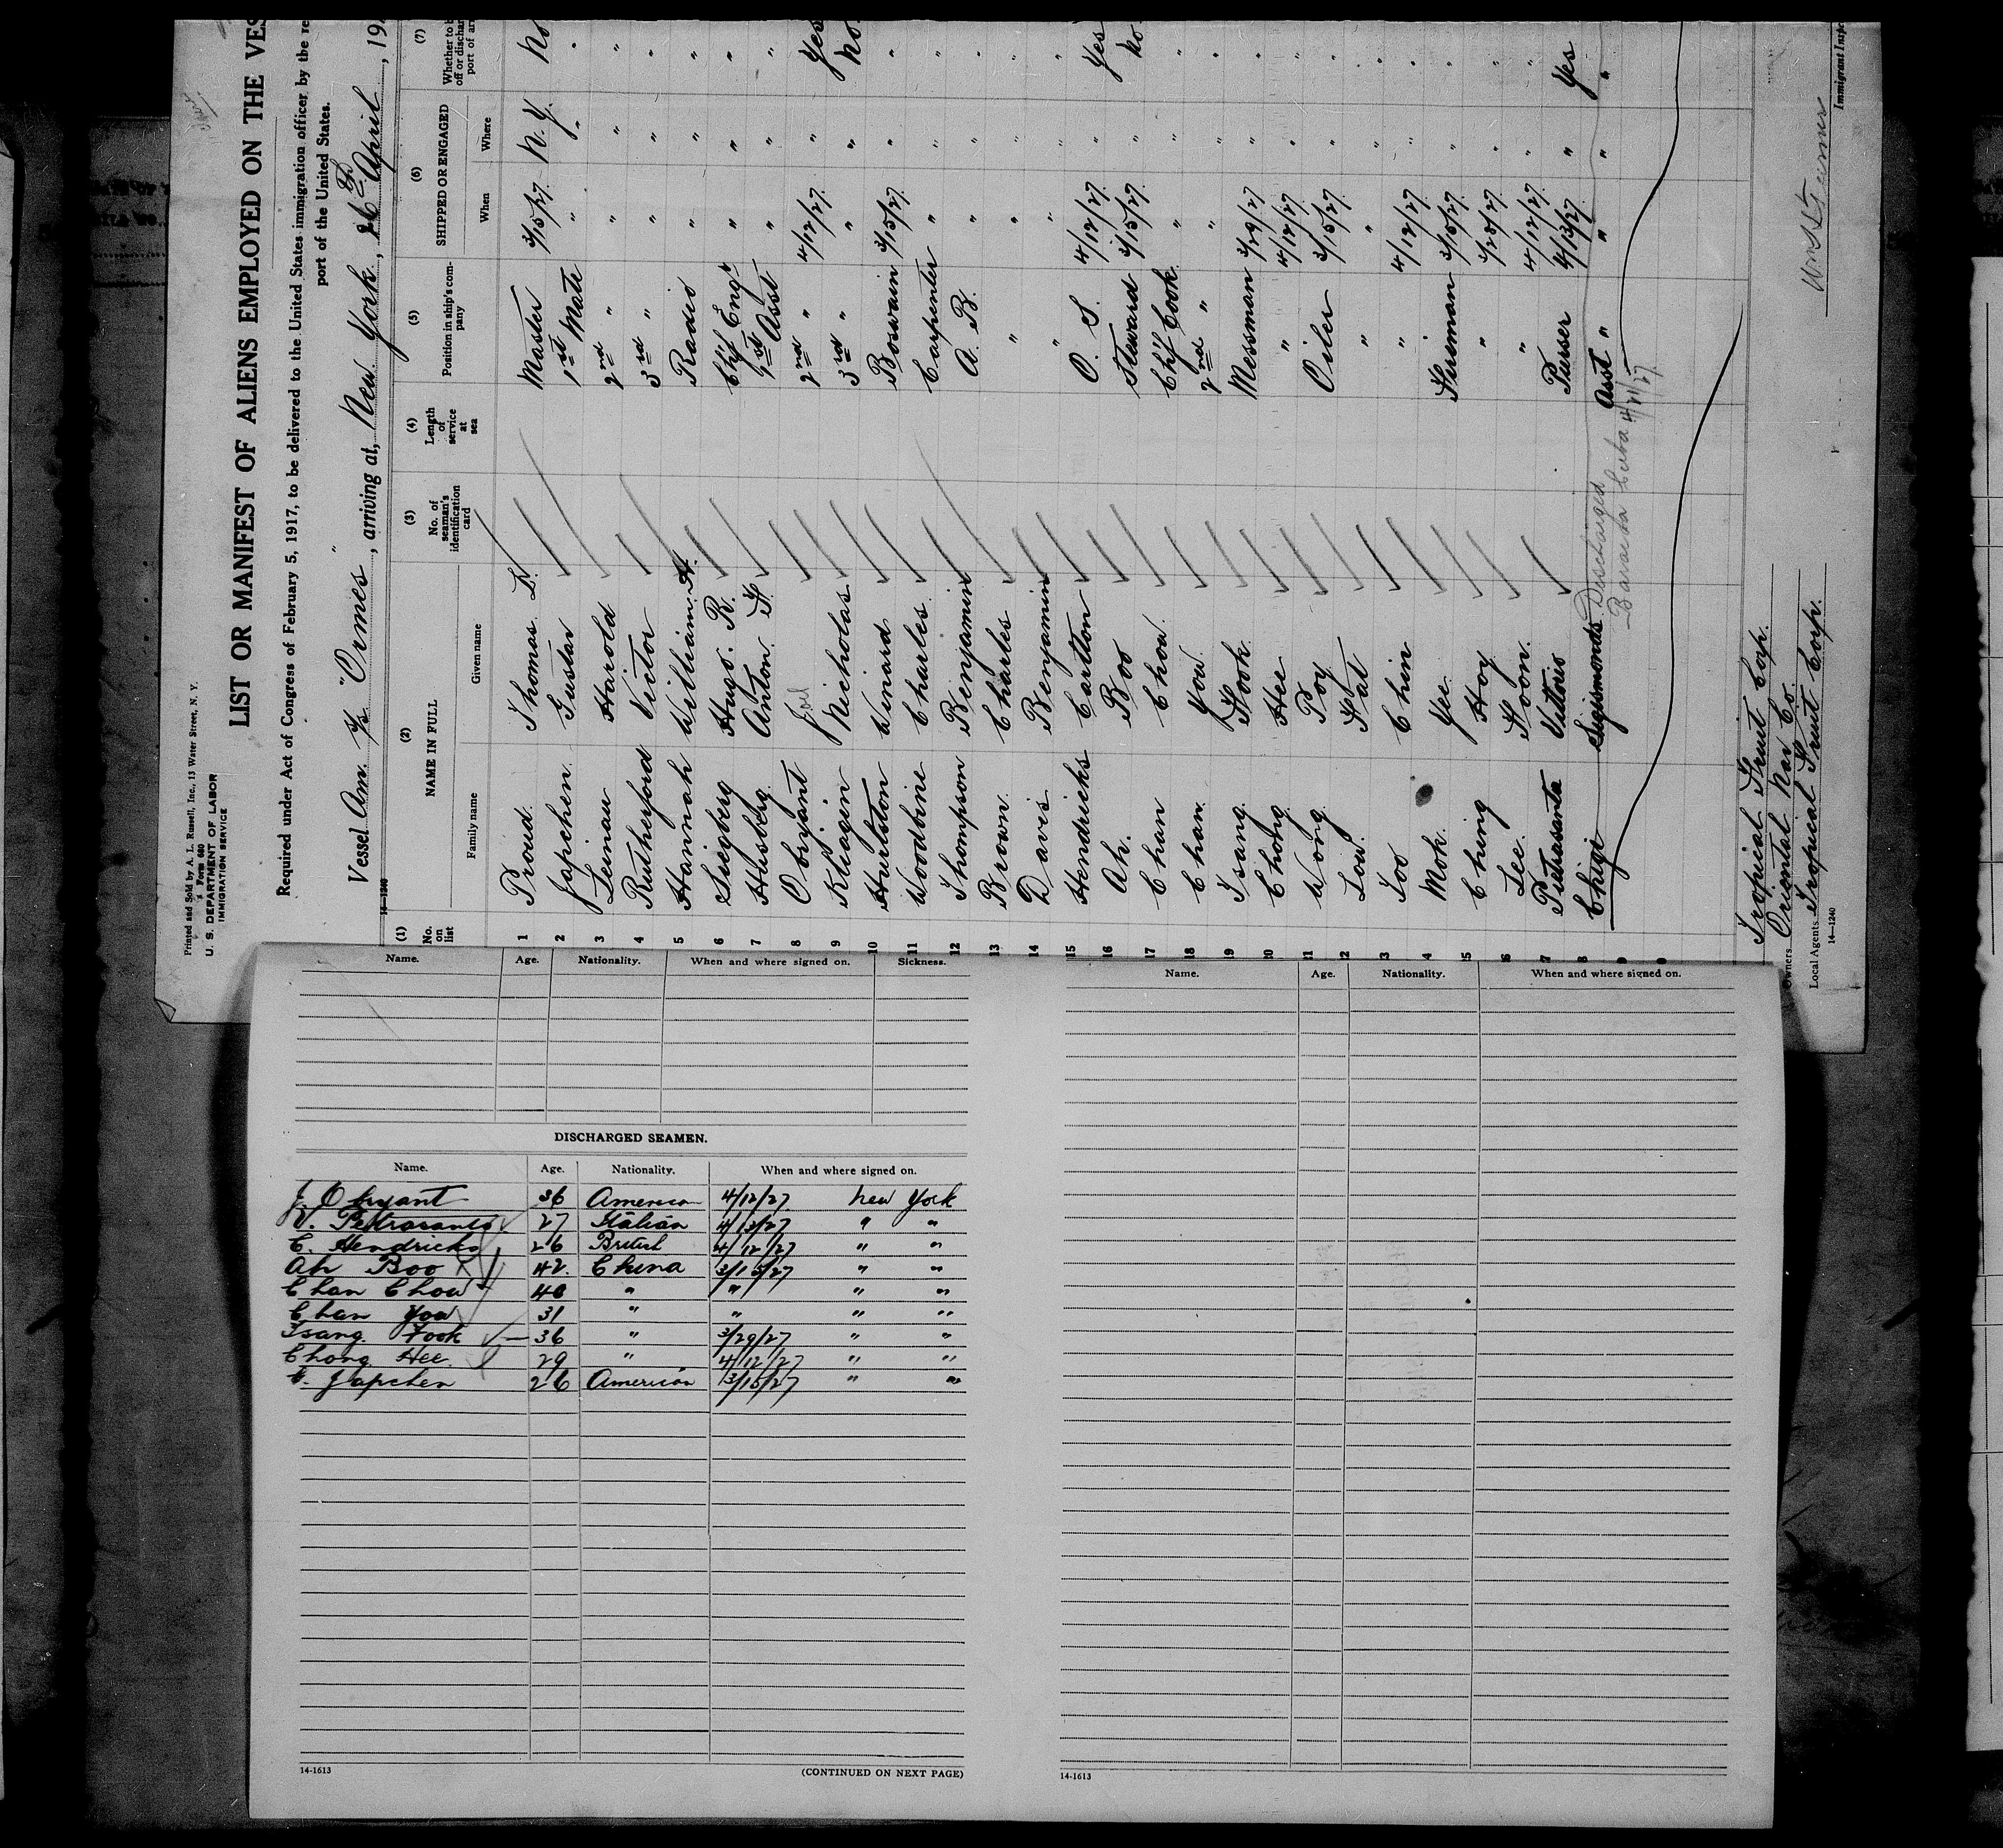 Printed and Sold by A. L. Russell, Inc., 13 Water Street, N. Y.
Form 680
U. S. DEPARTMENT OF LABOR
IMMIGRATION SERVICE
LIST OR MANIFEST OF ALIENS EMPLOYED ON THE VES
Required under Act of Congress of February 5, 1917, to be delivered to the United States immigration officer by the re
port of the United States.
Vessel Am. S/S "Ormes", arriving at, New York, 26th April, 19
14-1240
(1) No. on list (2) NAME IN FULL Family name Given name (3) No. of seaman's identification card (4) Length of service at sea (5) Position in ship's company (6) SHIPPED OR ENGAGED When Where (7) Whether to b off or dischar port of ar
1 Proud Thomas Master 3/15/27 N.Y. No
2 Japchen Gustav 1st Mate " " "
3 Leinau Harold 2nd " " " "
4 Rutherford Victor 3rd " " " "
5 Hannah William H. Radio " " "
6 Siegberg Hugo. R. Chf Engr " " "
7 Husberg Anton F. 1st Asst " " "
8 Obryant Joel 2nd " 4/12/27 " Yes
9 Kliagin Nicholas 3rd " " " No
10 Hurlston Winard Boswain 3/15/27 " "
11 Woodbine Charles Carpenter " " "
12 Thompson Benjamin A. B. " " "
13 Brown Charles " " " "
14 Davis Benjamin " " " "
15 Hendricks Carlton O. S. 4/12/27 " Yes
16 Ah. Boo Steward 3/15/27 " No
17 Chan Chow Chf Cook " " "
18 Chan You 2nd " " " "
19 Tsang Fook Messman 3/29/27 " "
20 Chong Hee " 4/12/27 " "
21 Wong Poy Oiler 3/15/27 " "
22 Low Fat " " " "
23 Loo Chin " 4/12/27 " "
24 Mok Yee Fireman 3/15/27 " "
25 Ching Hoy " 3/28/27 " "
26 Lee Foon " 4/12/27 " "
27 Pietrasanta Vittorio Purser 4/13/27 " Yes
28 Chigi Sigismondo Asst " " " "
Discharged
Baracoa Cuba 4/21/27
Tropical Fruit Corp.
Owners Oriental Nav Co.
Local Agents Tropical Fruit Corp.
14-1240
Immigrant Inspe
Name. Age. Nationality. When and where signed on. Sickness.
DISCHARGED SEAMEN.
Name. Age. Nationality. When and where signed on.
J. Obryant 36 American 4/12/27 New York
V. Pietrasanta 27 Italian 4/13/27 " "
C. Hendricks 26 British 4/12/27 " "
Ah Boo 42 China 3/15/27 " "
Chan Chow 40 " " " "
Chan You 31 " " " "
Tsang Fook 36 " 3/29/27 " "
Chong Hee 29 " 4/12/27 " "
G. Japchen 26 American 3/15/27 " "
14-1613
(CONTINUED ON NEXT PAGE)
Name. Age. Nationality. When and where signed on.
14-1613